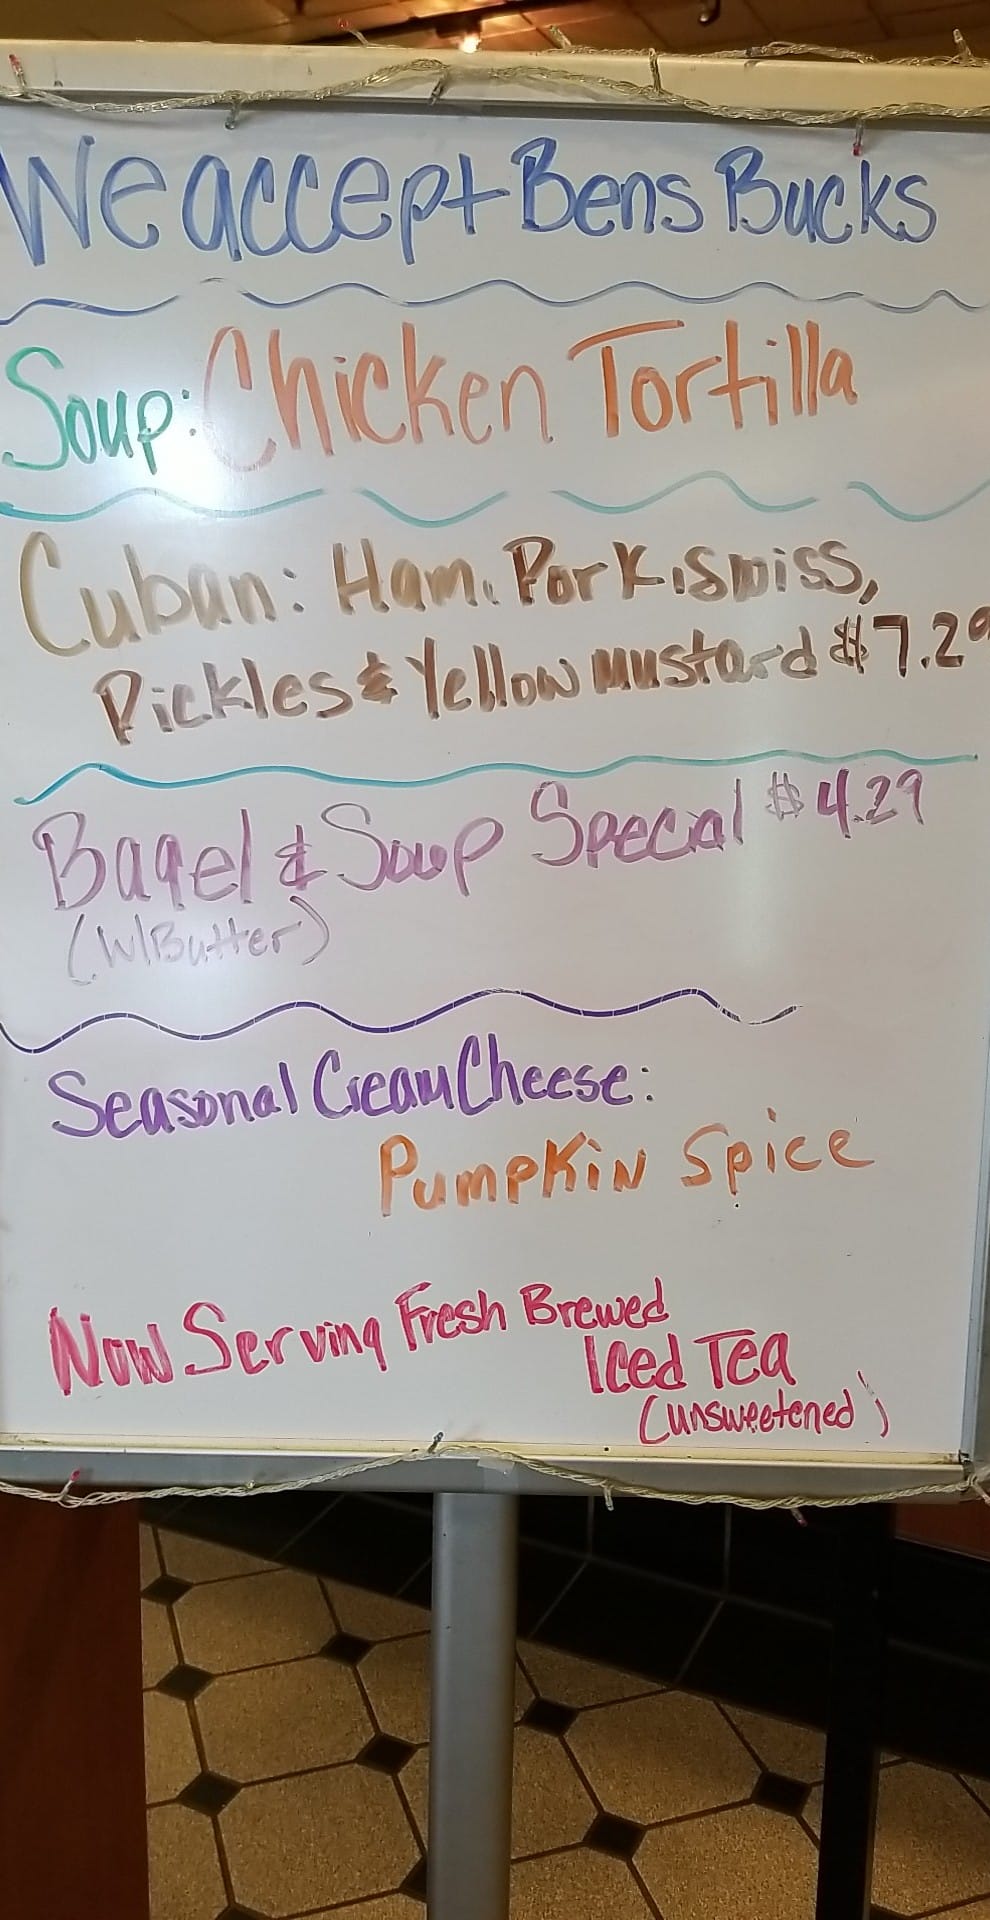 We accept Bens Bucks
Soup: Chicken Tortilla
Cuban: Ham, Pork, Swiss,
Pickles & Yellow mustard $7.29
Bagel & Soup Special $4.29
(W/Butter)
Seasonal Cream Cheese:
Pumpkin Spice
Now Serving Fresh Brewed
Iced Tea
(unsweetened)